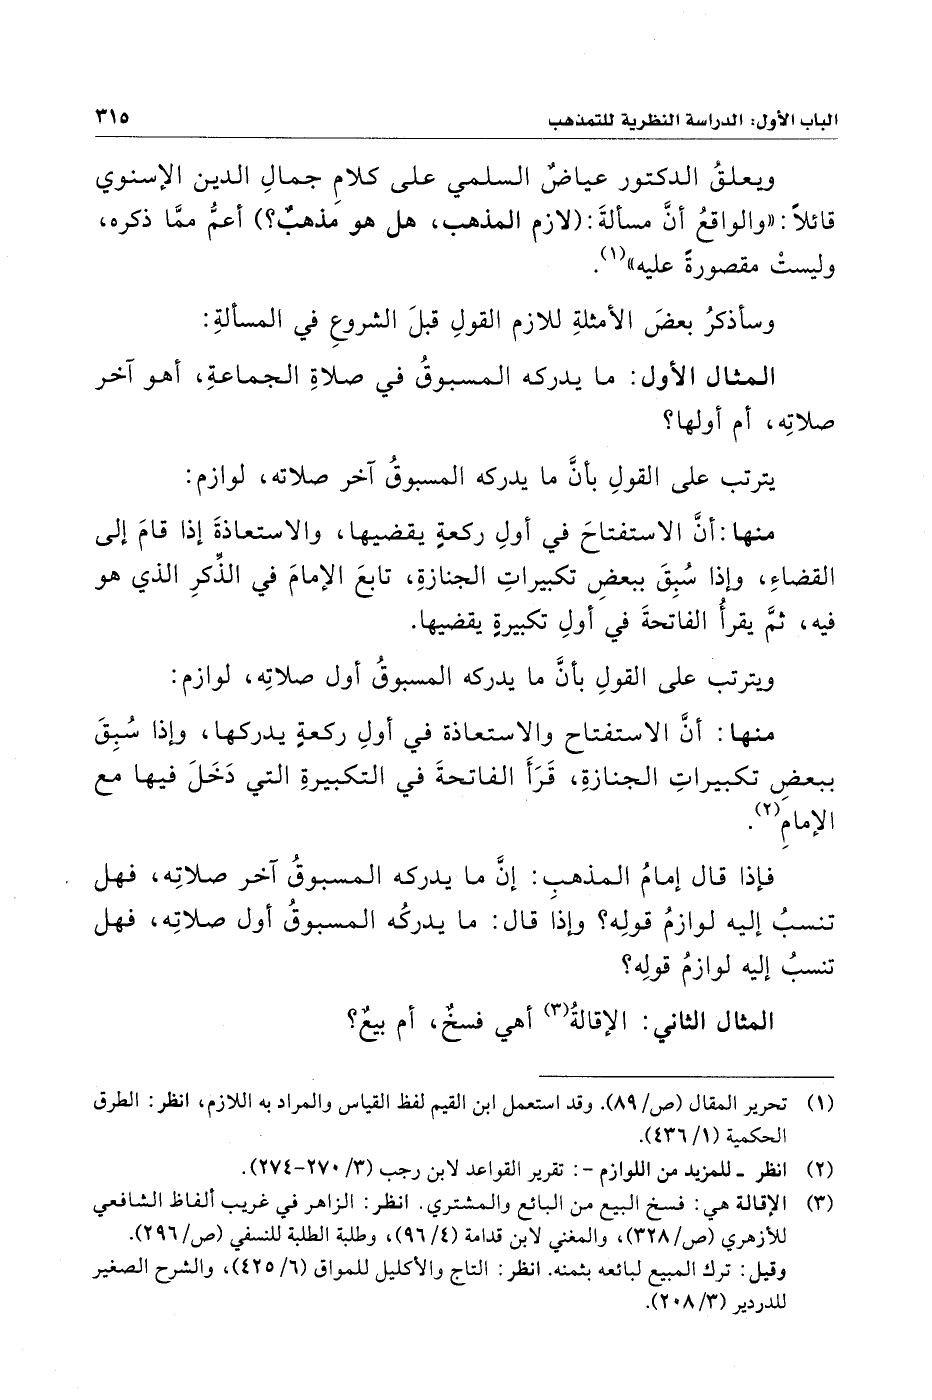 الباب الأول: الدراسة النظرية للتمذهب ٣١٥
ويعلقُ الدكتور عياضٌ السلمي على كلامِ جمالِ الدين الإسنوي
قائلاً: «والواقعُ أنَّ مسألةَ: (لازم المذهب، هل هو مَذهبٌ؟) أعمُّ ممَّا ذكره،
وليستْ مقصورةً عليه»(١).
وسأذكرُ بعضَ الأمثلةِ للازم القولِ قبلَ الشروعِ في المسألةِ:
المثال الأول: ما يدركه المسبوقُ في صلاةِ الجماعةِ، أهو آخر
صلاتِه، أم أولها؟
يترتب على القولِ بأنَّ ما يدركه المسبوقُ آخر صلاته، لوازم:
منها: أنَّ الاستفتاحَ في أولِ ركعةٍ يقضيها، والاستعاذةَ إذا قامَ إلى
القضاءِ، وإذا سُبِقَ ببعضِ تكبيراتِ الجنازةِ، تابعَ الإمامَ في الذِّكرِ الذي هو
فيه، ثمَّ يقرأُ الفاتحةَ في أولِ تكبيرةٍ يقضيها.
ويترتب على القولِ بأنَّ ما يدركه المسبوقُ أول صلاتِه، لوازم:
منها: أنَّ الاستفتاح والاستعاذة في أولِ ركعةٍ يدركها، وإذا سُبِقَ
ببعضِ تكبيراتِ الجنازةِ، قَرَأَ الفاتحةَ في التكبيرةِ التي دَخَلَ فيها مع
الإمامِ(٢).
فإذا قال إمامُ المذهبِ: إنَّ ما يدركه المسبوقُ آخر صلاتِه، فهل
تنسبُ إليه لوازمُ قولِه؟ وإذا قال: ما يدركُه المسبوقُ أول صلاتِه، فهل
تنسبُ إليه لوازمُ قولِه؟
المثال الثاني: الإقالةُ(٣) أهي فسخٌ، أم بيعٌ؟
(١) تحرير المقال (ص/ ٨٩). وقد استعمل ابن القيم لفظ القياس والمراد به اللازم، انظر: الطرق
الحكمية (١/ ٤٣٦).
(٢) انظر ـ للمزيد من اللوازم -: تقرير القواعد لابن رجب (٣/ ٢٧٠-٢٧٤).
(٣) الإقالة هي: فسخ البيع من البائع والمشتري. انظر: الزاهر في غريب ألفاظ الشافعي
للأزهري (ص/ ٣٢٨)، والمغني لابن قدامة (٤/ ٩٦)، وطلبة الطلبة للنسفي (ص/ ٢٩٦).
وقيل: ترك المبيع لبائعه بثمنه. انظر: التاج والأكليل للمواق (٦/ ٤٢٥)، والشرح الصغير
للدردير (٣/ ٢٠٨).